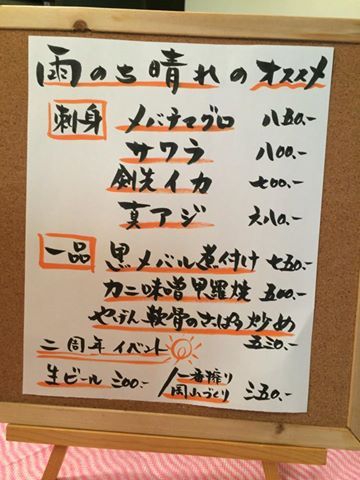 雨のち晴れのオススメ
刺身 メバチマグロ 八五〇.-
サワラ 八〇〇.-
剣先イカ 七〇〇.-
真アジ 六八〇.-
一品 黒メバル煮付け 七五〇.-
カニ味噌甲羅焼 五〇〇.-
やげん軟骨のさっぱり炒め
五三〇.-
二周年イベント
生ビール 三〇〇.- / 一番搾り 岡山づくり 三五〇.-